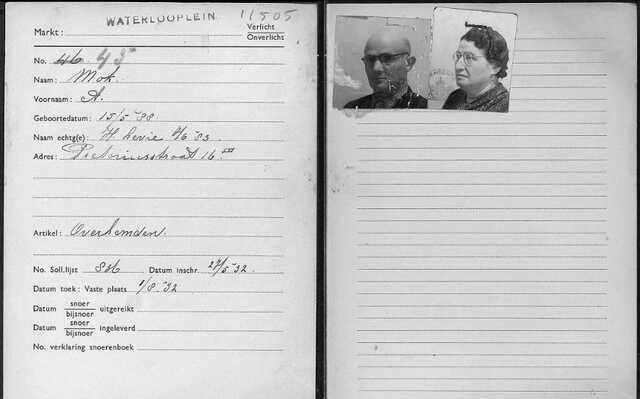 WATERLOOPLEIN 11505
Markt: Verlicht
Onverlicht
No. 46 45
Naam: Mok.
Voornaam: A.
Geboortedatum: 15/5 '88
Naam echtg(e): H. Levie 6/6 83
Adres: Pretoriusstraat 16 III
Artikel: Overhemden.
No. Soll.lijst 836 Datum inschr. 27/5 '32.
Datum toek: Vaste plaats 1/8 - '32
Datum snoer
bijsnoer uitgereikt
Datum snoer
bijsnoer ingeleverd
No. verklaring snoerenboek